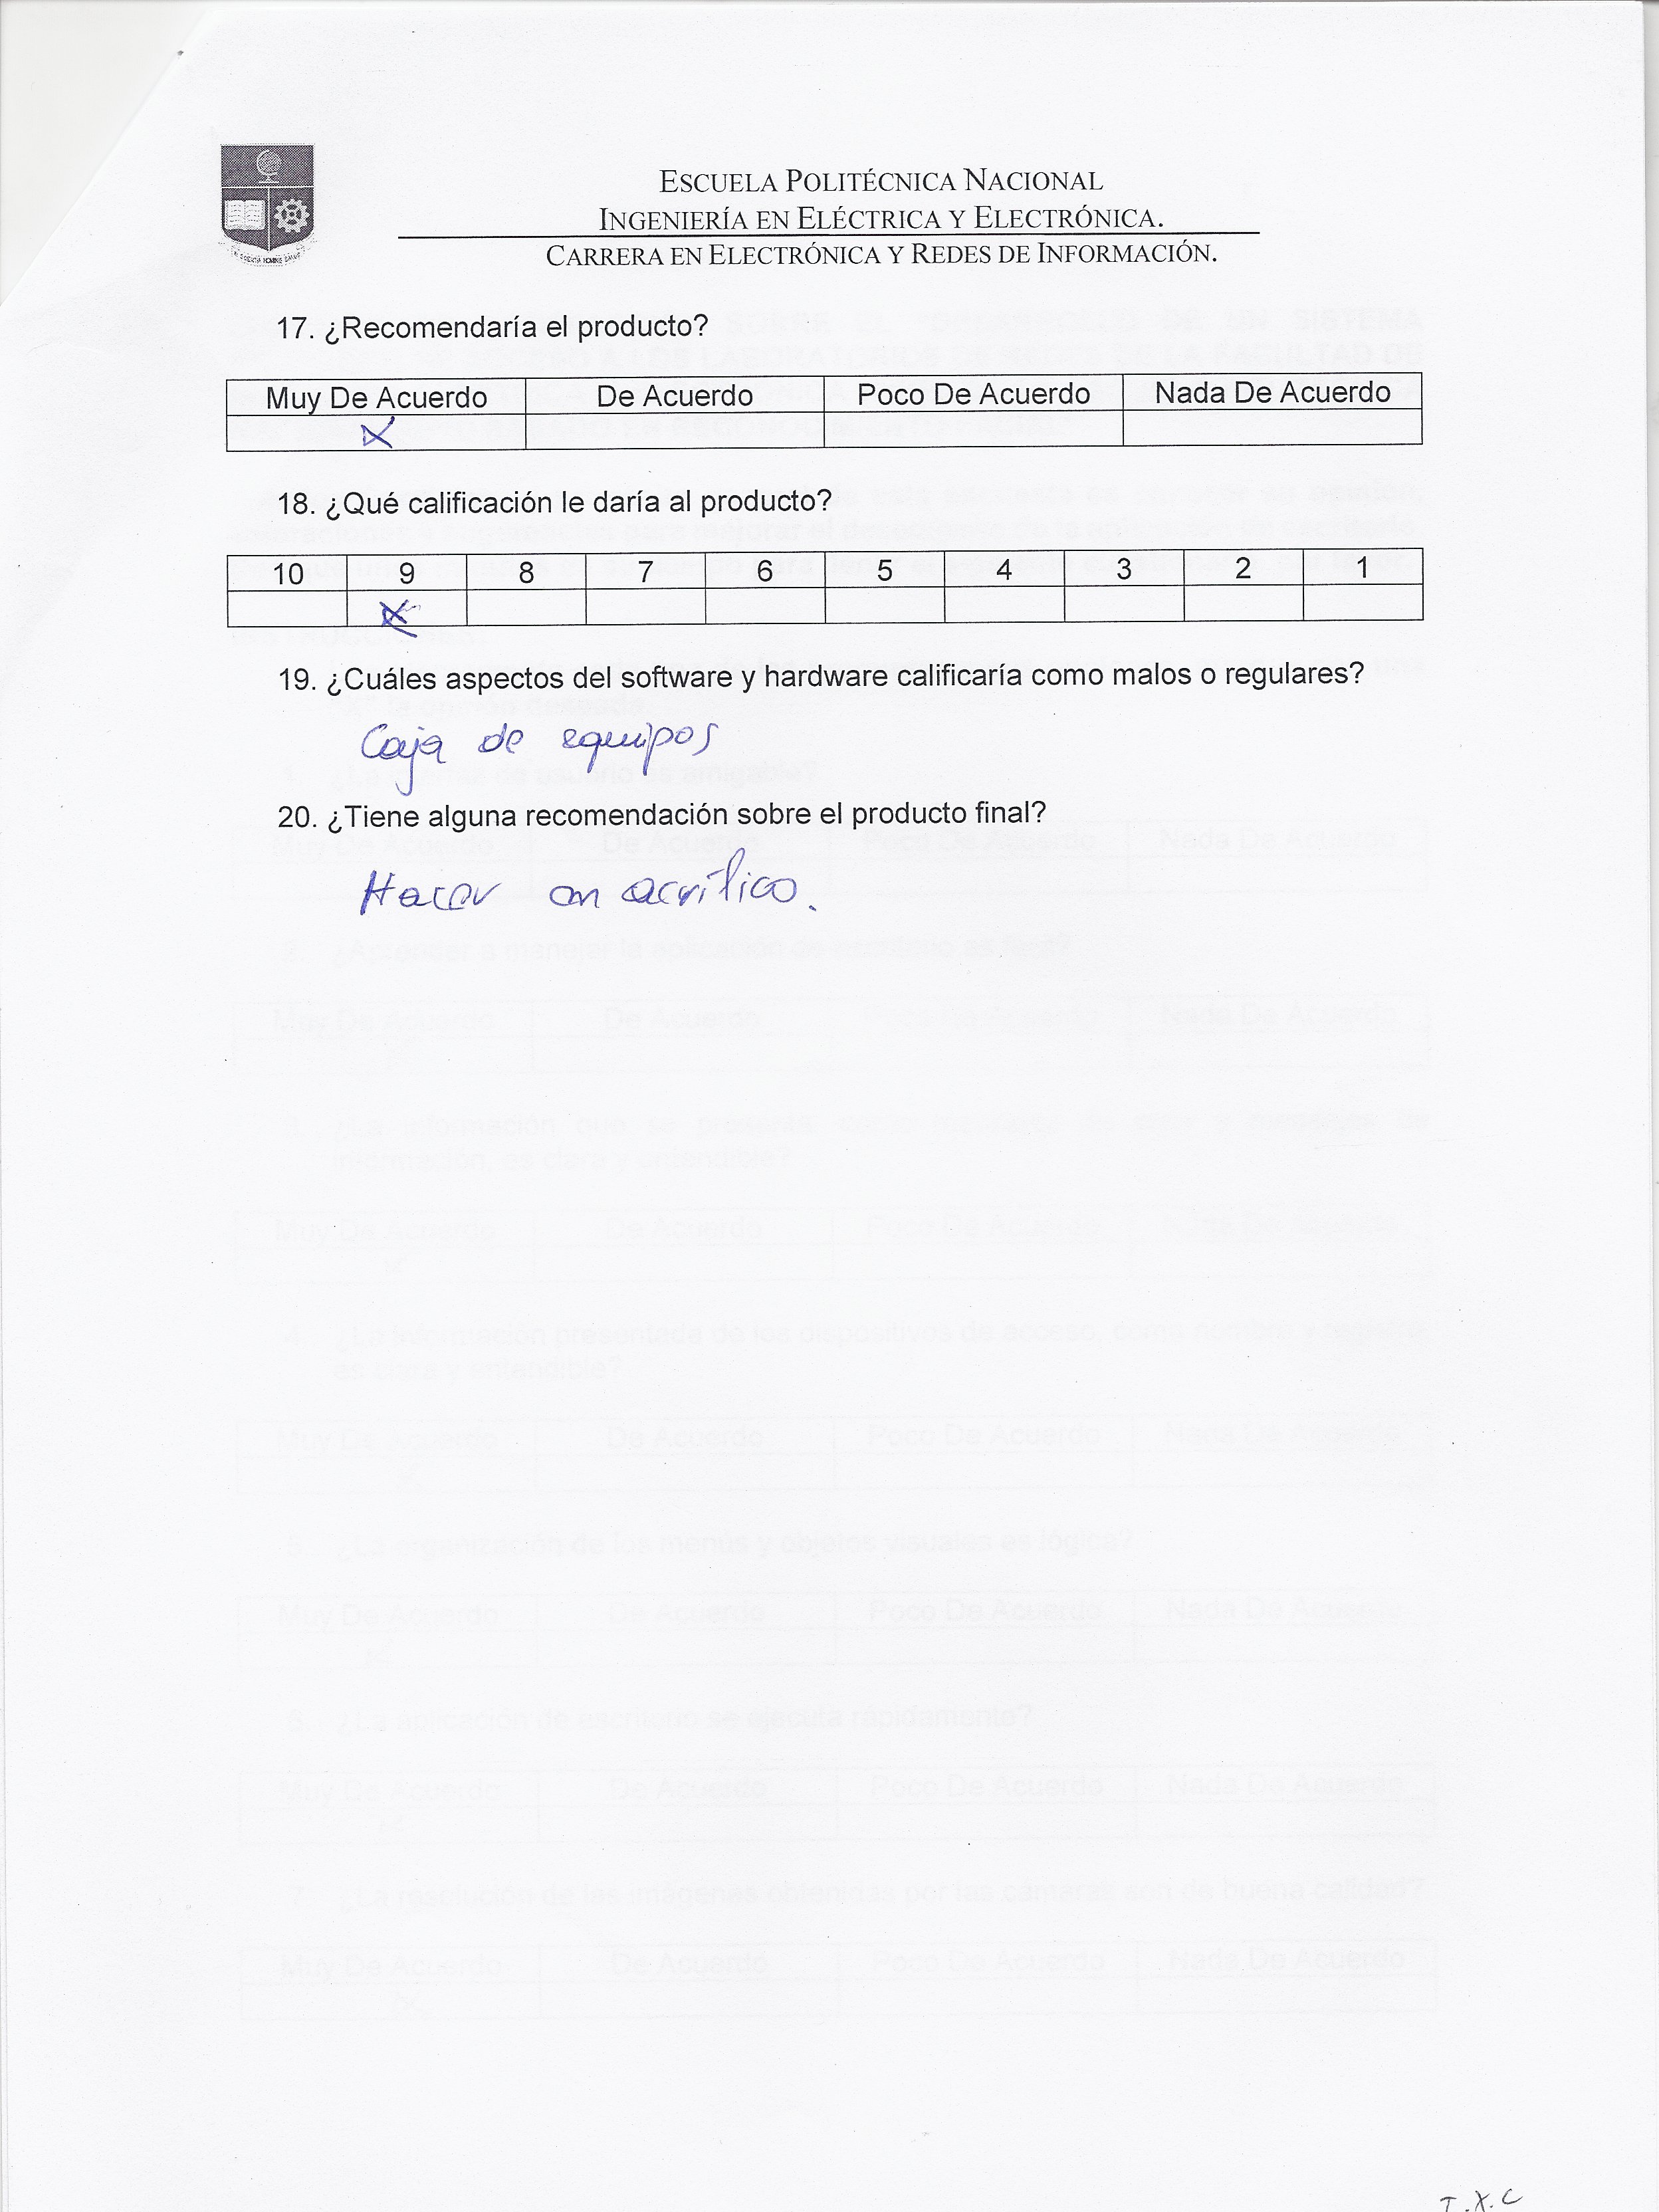 ESCUELA POLITÉCNICA NACIONAL
INGENIERÍA EN ELÉCTRICA Y ELECTRÓNICA.
CARRERA EN ELECTRÓNICA Y REDES DE INFORMACIÓN.
17. ¿Recomendaría el producto?
Muy De Acuerdo De Acuerdo Poco De Acuerdo Nada De Acuerdo
X
18. ¿Qué calificación le daría al producto?
10 9 8 7 6 5 4 3 2 1
X
19. ¿Cuáles aspectos del software y hardware calificaría como malos o regulares?
Caja de equipos
20. ¿Tiene alguna recomendación sobre el producto final?
Hacer en acrílico.